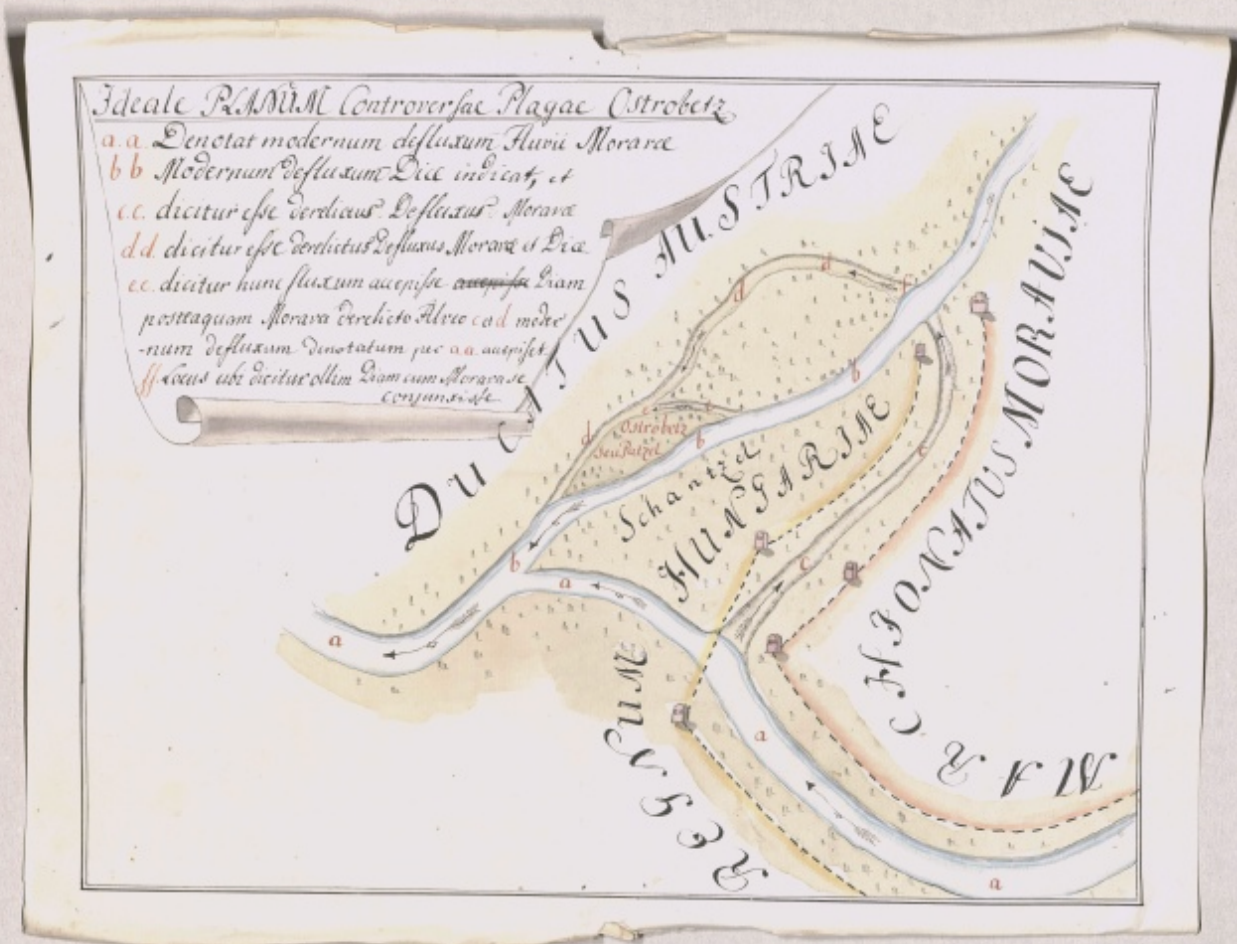 Ideale PLANUM Controversae Plagae Ostrobetz
a. a. Denotat modernum defluxum Fluvii Moravæ
b b Modernum defluxum Diæ indicat, et
c.c. dicitur esse derelictus Defluxus Moravæ
d.d. dicitur esse derelictus Defluxus Moravæ et Diæ
e.e. dicitur hunc fluxum accepisse accepisse Diam
posteaquam Morava derelicto Alveo c a d moder
-num defluxum denotatum per a.a. accepiset
ff. Locus ubi dicitur ollim Diam cum Morava se
conjunxisse
DUCATUS AUSTRIAE
MARCHIONATUS MORAVIAE
REGNUM HUNGARIAE
Schantzel
Ostrobetz
seu Patzel
d
d
d
f
b
b
b
e
e
c
c
a
a
a
a